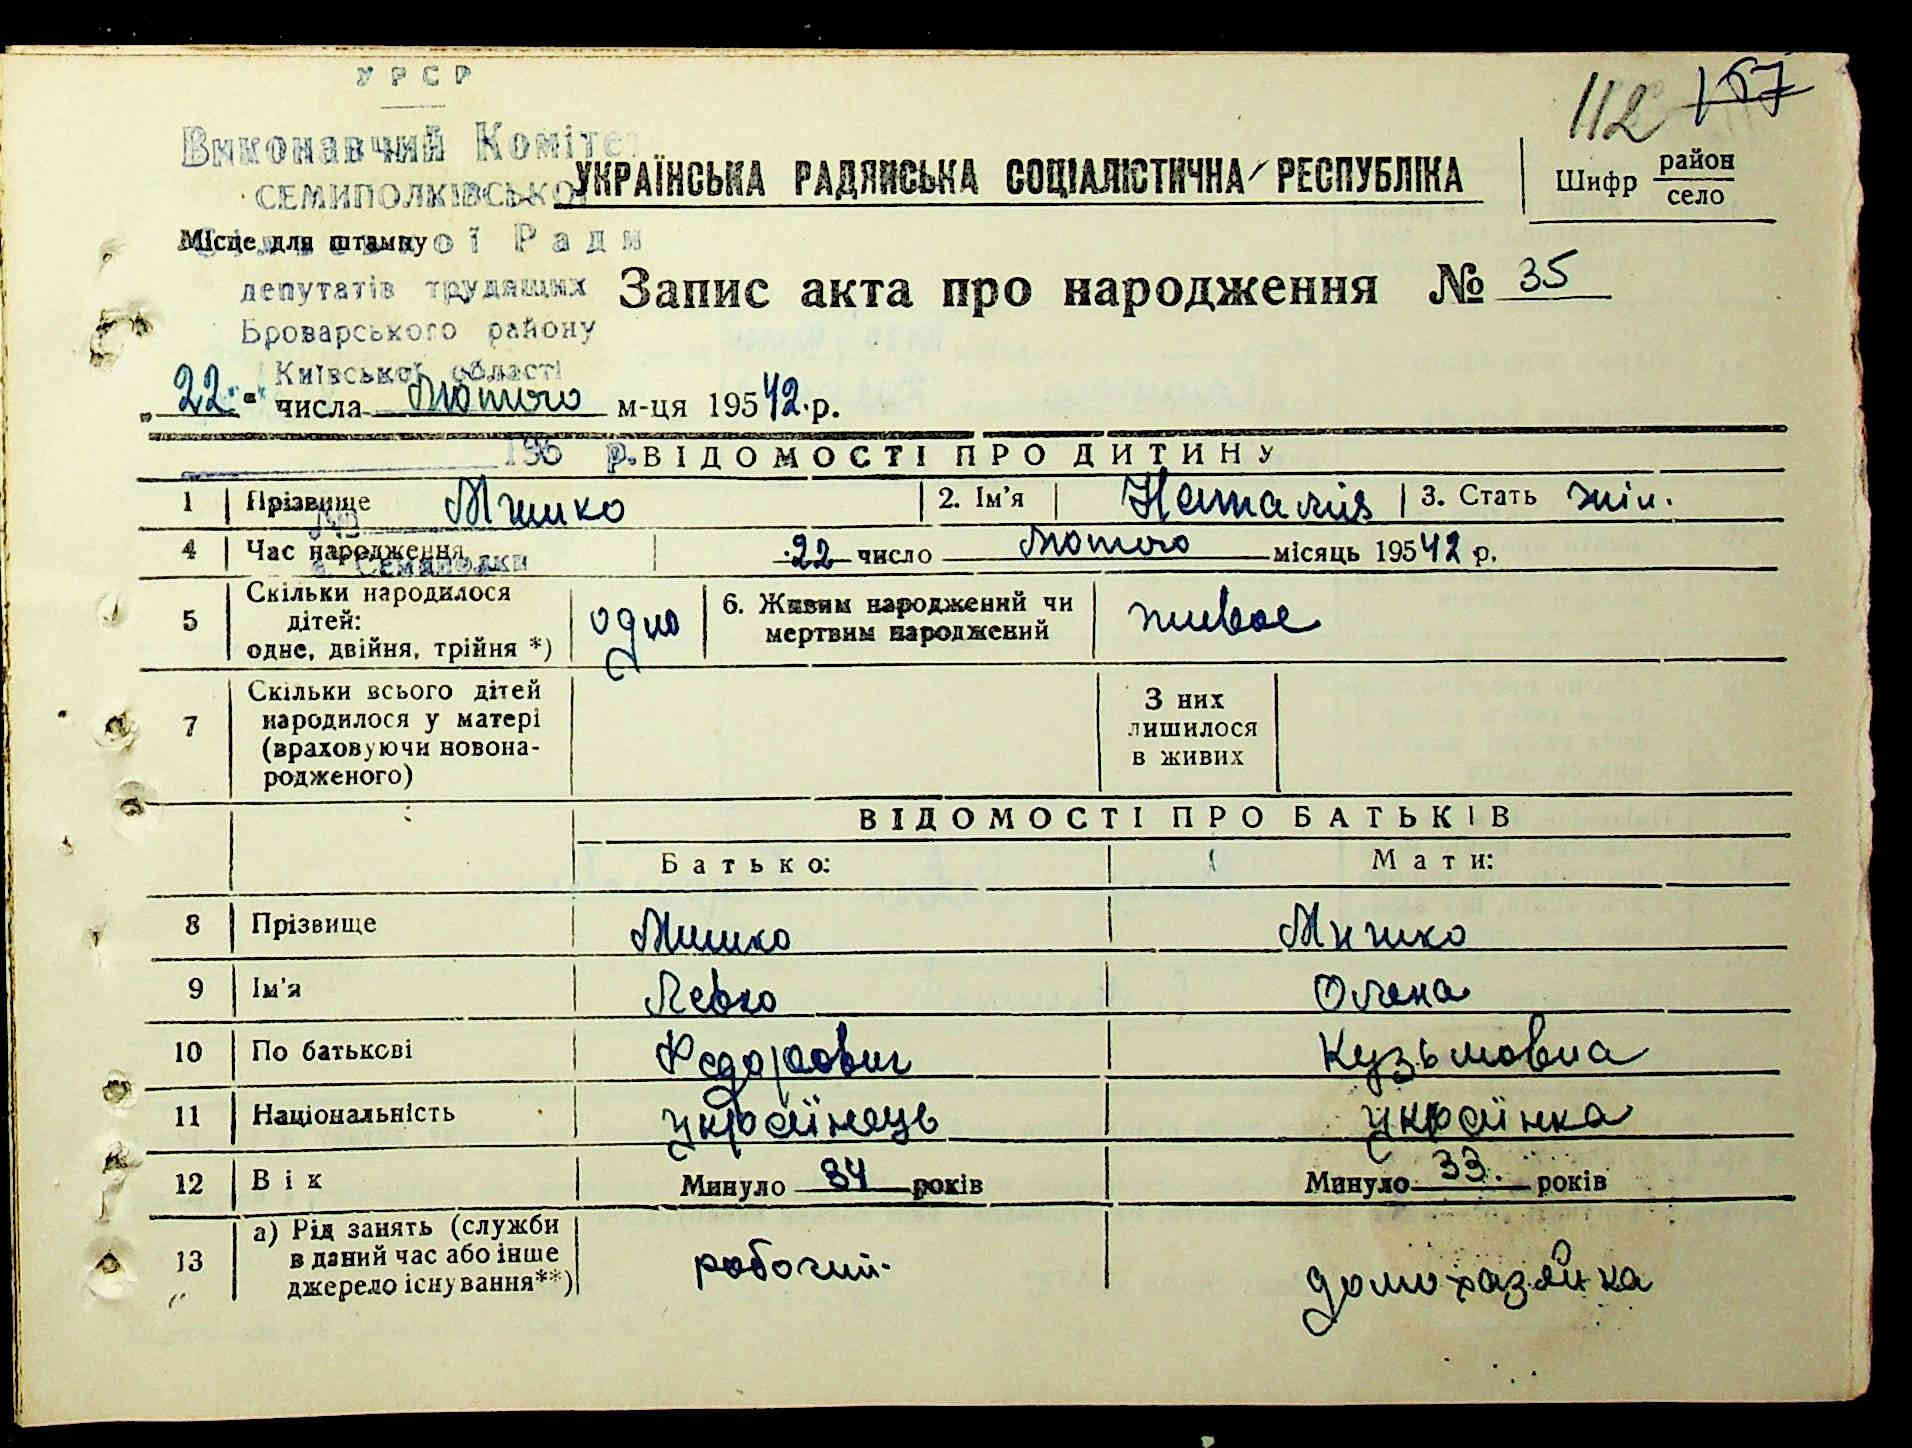 УРСР
112 157
Виконавчий Комітет
УКРАЇНСЬКА РАДЯНСЬКА СОЦІАЛІСТИЧНА РЕСПУБЛІКА
Шифр район
село
СЕМИПОЛКІВСЬКОЇ
Місце для штампу
Ради
депутатів трудящих
Запис акта про народження № 35
Броварського району
Київської області
„22" числа Лютого м-ця 195 42 р.
196 р.
ВІДОМОСТІ ПРО ДИТИНУ
1 Прізвище Мишко 2. Ім'я Наталия 3. Стать жін.
№
4 Час народження 22 число Лютого місяць 195 42 р.
с. Семиполки
5 Скільки народилося
дітей:
одне, двійня, трійня *) одно
6. Живим народжений чи
мертвим народжений живое
7 Скільки всього дітей
народилося у матері
(враховуючи новона-
родженого)
З них
лишилося
в живих
ВІДОМОСТІ ПРО БАТЬКІВ
Батько: Мати:
8 Прізвище Мишко Мишко
9 Ім'я Левко Олена
10 По батькові Федорович Кузьмовна
11 Національність українець українка
12 Вік Минуло 34 років Минуло 33 років
13 а) Рід занять (служби
в даний час або інше
джерело існування**) робочий домохазяйка